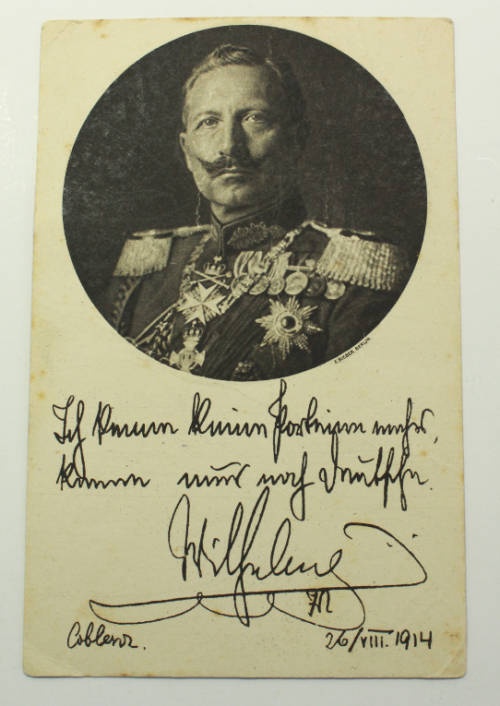 E. BIEBER, BERLIN
Ich kenne keine Parteien mehr,
kenne nur noch Deutsche.
Wilhelm
IR
Coblenz. 26/VIII. 1914